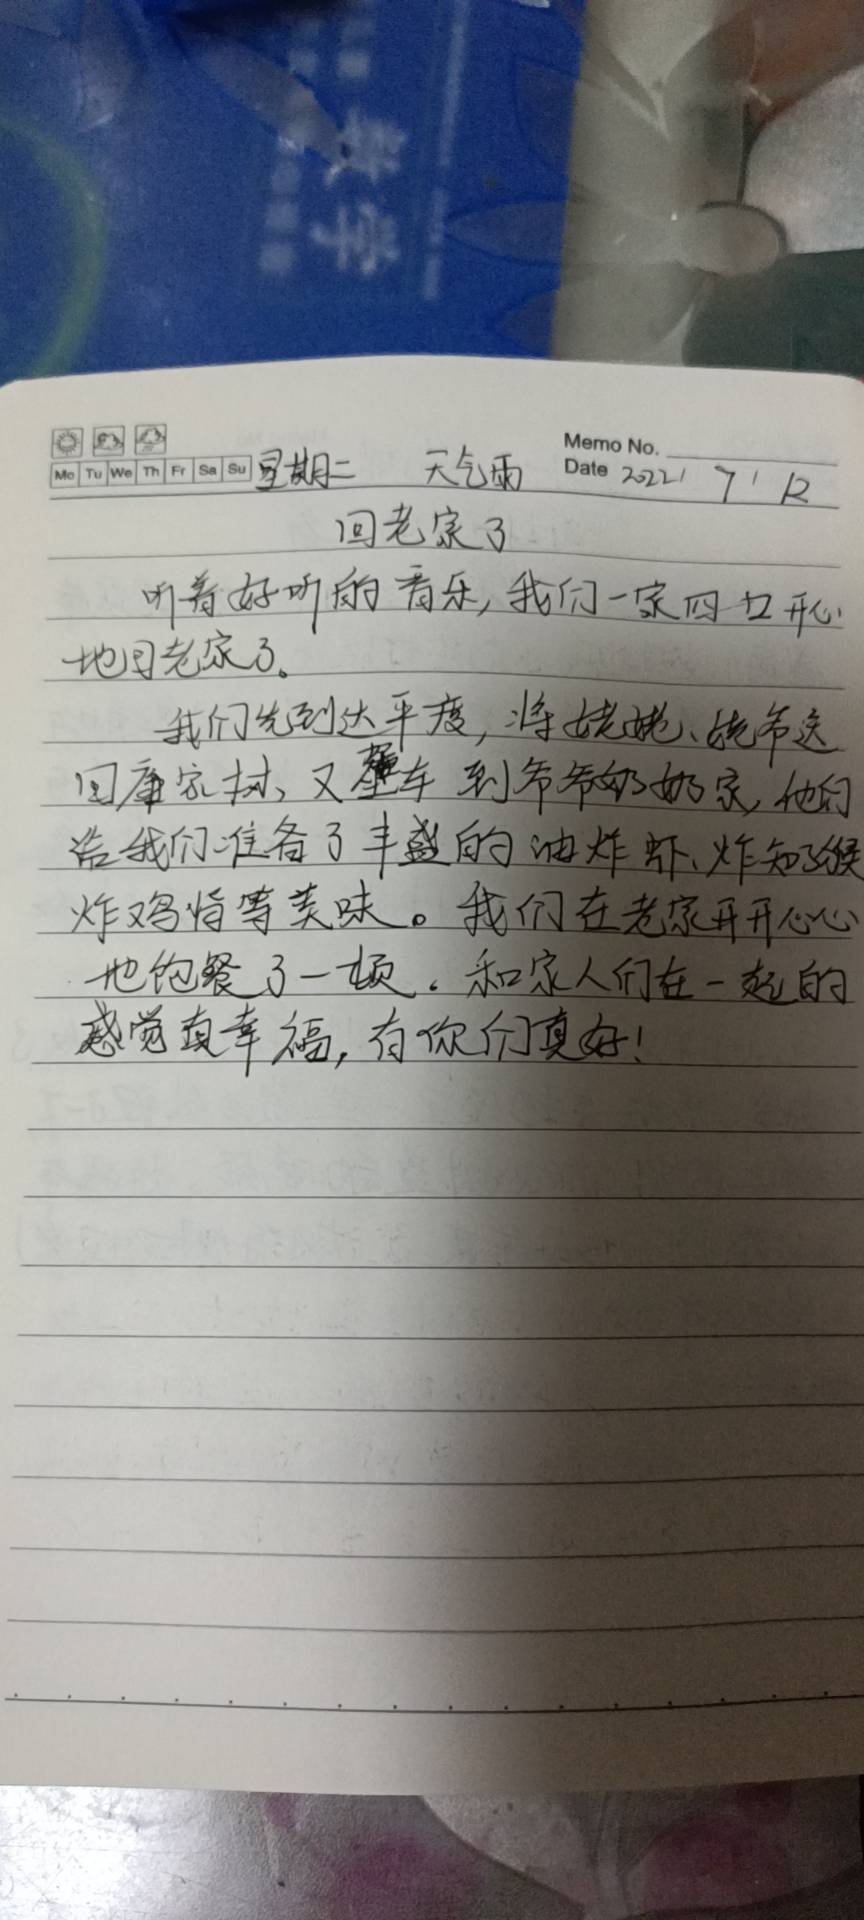 数学
Memo No.
Mo Tu We Th Fr Sa Su 星期二 天气雨 Date 2022' 7' 12
回老家了
听着好听的音乐,我们一家四口开心
地回老家了。
我们先到达平度,将姥姥、姥爷送
回康家村、又驱车到爷爷奶奶家,他们
给我们准备了丰盛的油炸虾、炸知了猴
炸鸡等美味。我们在老家开开心心
地饱餐了一顿。和家人们在一起的
感觉真幸福,有你们真好!